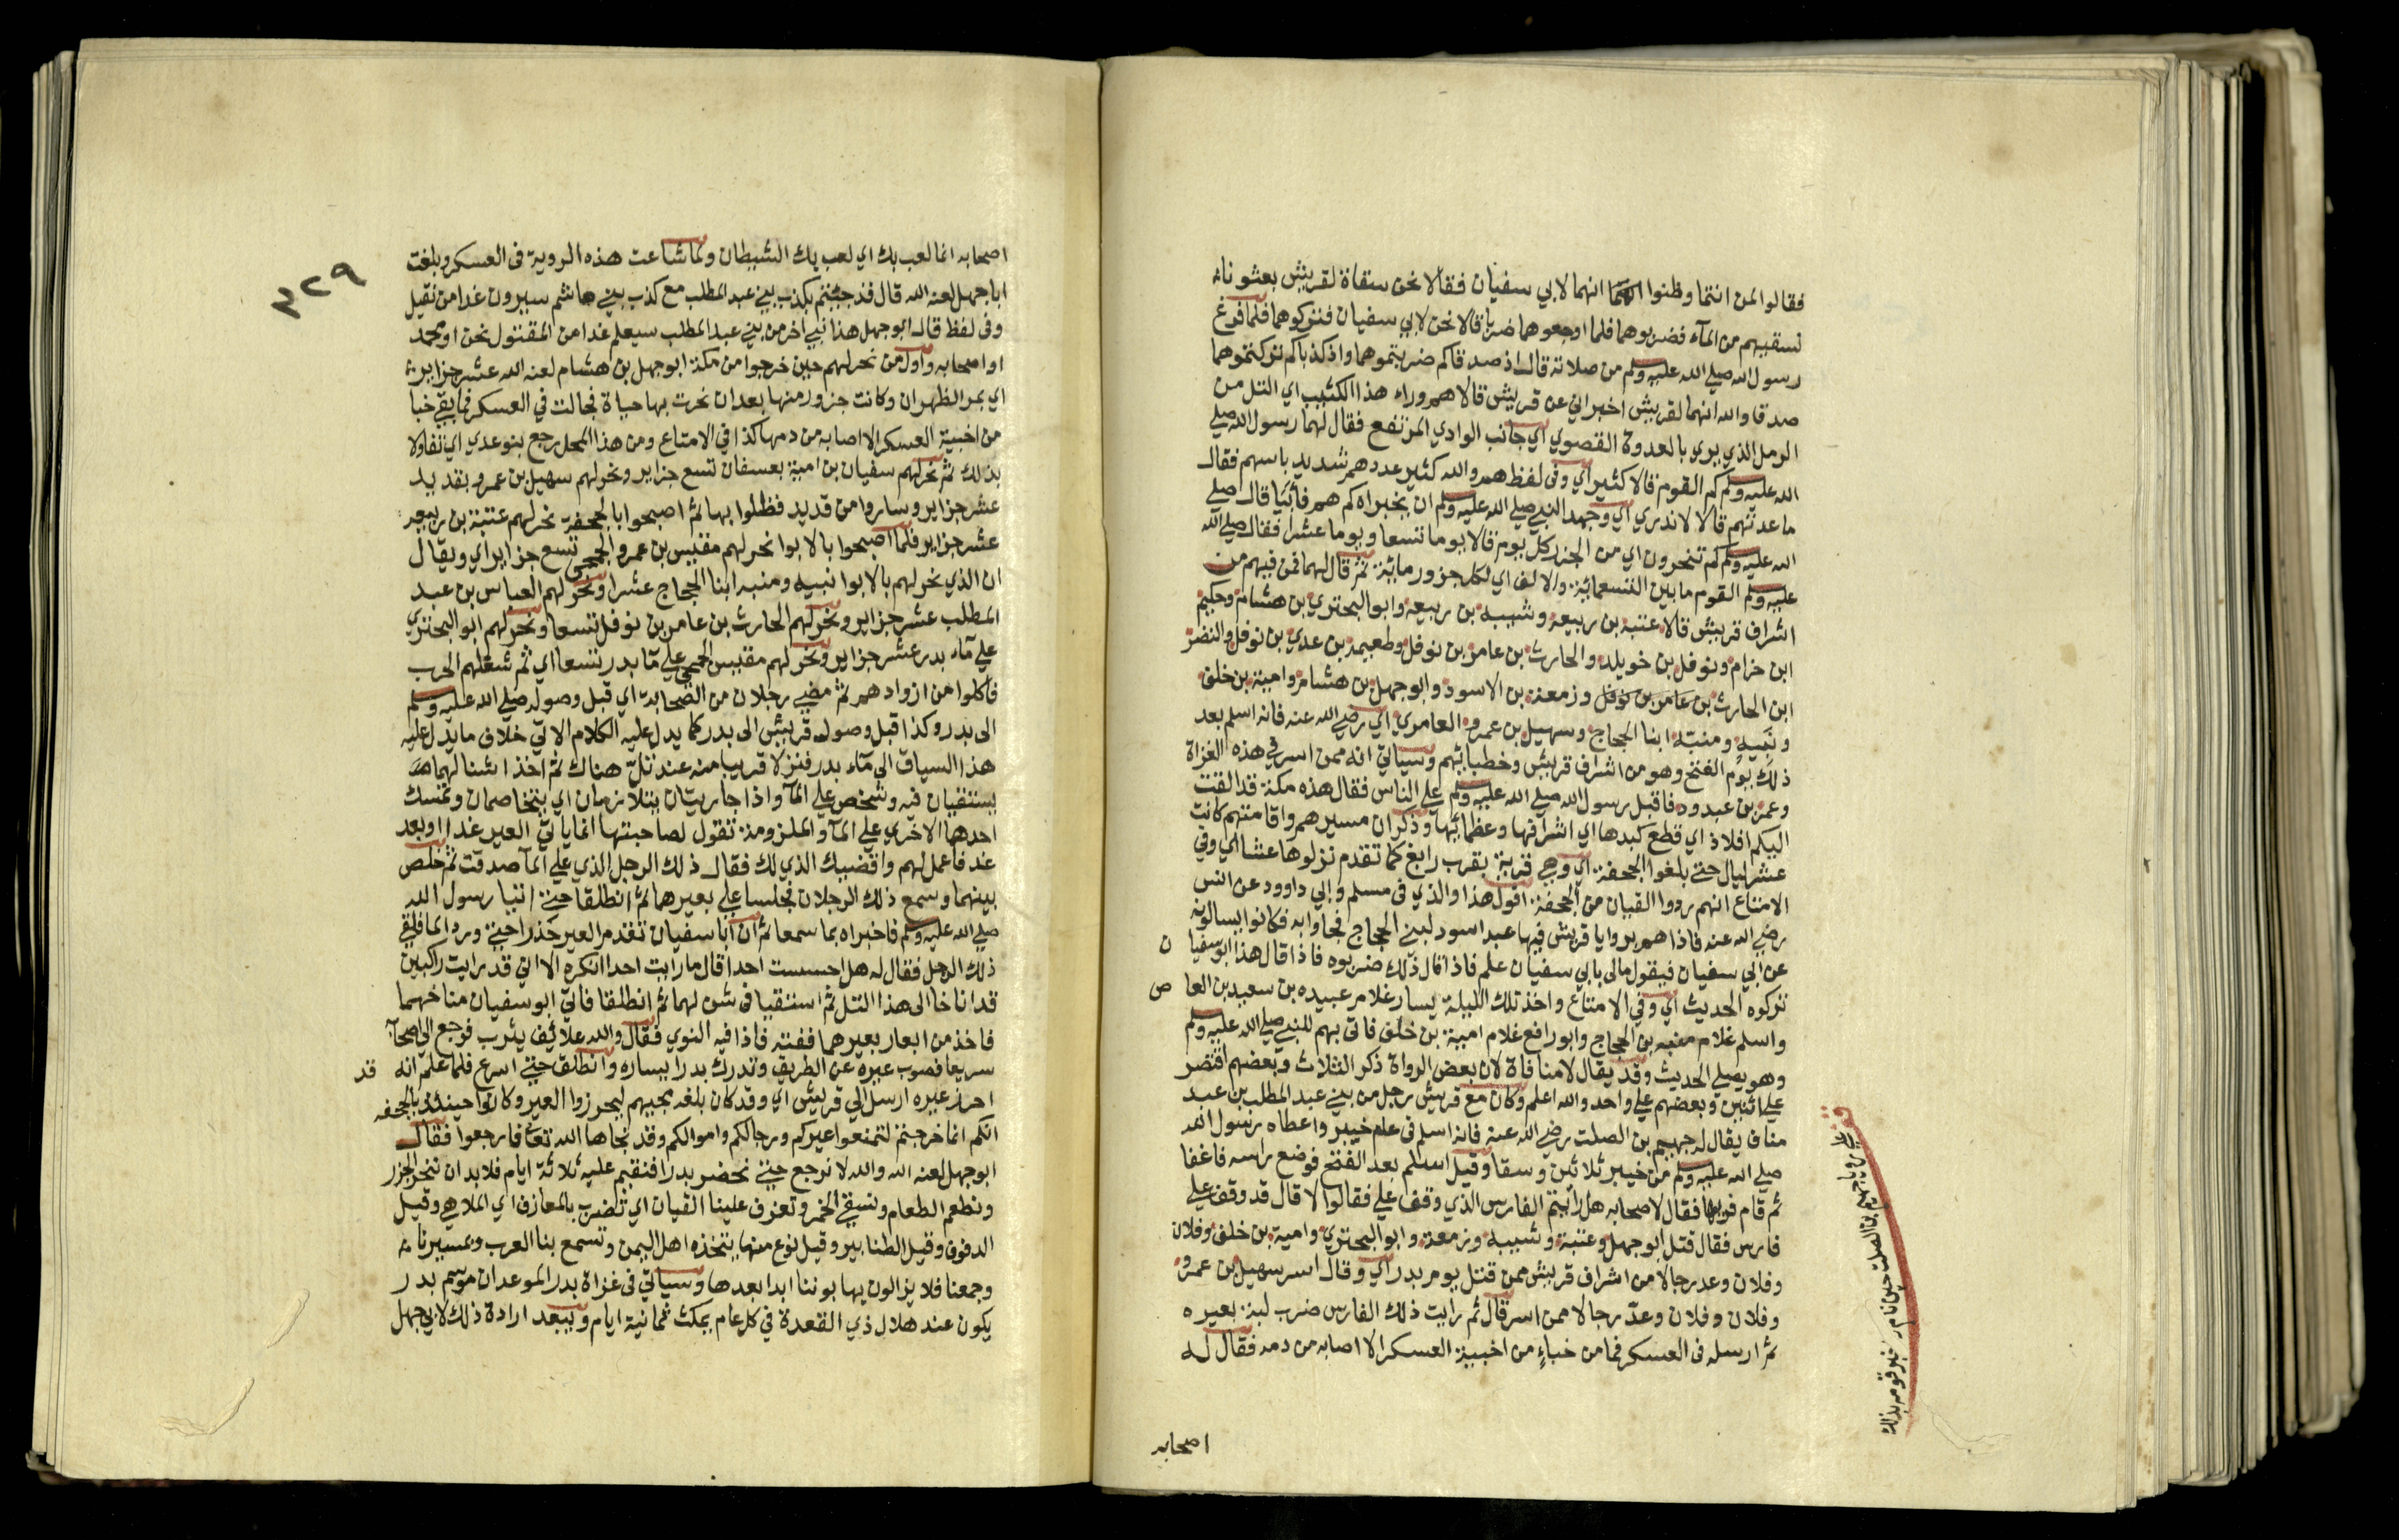 فقالوا لمن انتما وظنوا انهما لابي سفيان فقالا نحن سقاة لقريش بعثونا
نسقيهم من المآء فضربوهما فلما اوجعوهما ضربا قالا نحن لابي سفيان فتركوهما فلما فرغ
رسول الله صلي الله عليه وسلم من صلاته قال اذ صدقاكم ضربتموهما واذ كذباكم تركتموهما
صدقا والله انهما لقريش اخبراني عن قريش قالا هم وراء هذا الكثيب اي التل من
الرمل الذي يري بالعدوة القصوي اي جانب الوادي المرتفع فقال لهما رسول الله صلي
الله عليه وسلم كم القوم قالا كثير اي وفي لفظ هم والله كثير عددهم شديد باسهم فقال
ما عدتهم قالا لا ندري اي وجهد النبي صلي الله عليه وسلم ان يخبراه كم هم فأبيا قال صلي
الله عليه وسلم كم تنحرون اي من الجزر كل يوم قالا يوما تسعا ويوما عشرا فقال صلي الله
عليه وسلم القوم ما بين التسعمائة والالف اي لكل جزور مائة ثم قال لهما فمن فيهم من
اشراف قريش قالا عتبة بن ربيعة وشيبه بن ربيعه وابو البحتري بن هشام وحكيم
ابن حزام ونوفل بن خويلد والحارث بن عامر بن نوفل وطعيمة بن عدي بن نوفل والنضر
ابن الحارث بن عامر بن نوفل وزمعة بن الاسود وابو جهل بن هشام وامية بن خلف
ونبيه ومنبه ابنا الحجاج وسهيل بن عمرو العامري اي رضي الله عنه فانه اسلم بعد
ذلك يوم الفتح وهو من اشراف قريش وخطبائهم وسياتي انه ممن اسر في هذه الغزاة
وعمر بن عبد ود فاقبل رسول الله صلي الله عليه وسلم علي الناس فقال هذه مكة قد القت
اليكم افلاذ اي قطع كبدها اي اشرافها وعظمائها وذكر ان مسيرهم واقامتهم كانت
عشر ليال حتي بلغوا الجحفة اي وهي قرية بقرب رابغ كما تقدم نزلوها عشا اي وفي
الامتاع انهم ردوا القيان من الجحفة اقول هذا والذي في مسلم وابي داوود عن انس
رضي الله عنه فاذا هم بروايا قريش فيها عبد اسود لبني الحجاج فجاوا به فكانوا يسالونه
عن ابي سفيان فيقول مالي بابي سفيان علم فاذا قال ذلك ضربوه فاذا قال هذا ابو سفيان
تركوه الحديث اي وفي الامتاع واخذ تلك الليلة يسار غلام عبيده بن سعيد بن العاص
واسلم غلام منبه بن الحجاج وابو رافع غلام امية بن خلف فاتي بهم للنبي صلي الله عليه وسلم
وهو يصلي الحديث وقد يقال لا منافاة لان بعض الرواة ذكر الثلاث وبعضهم اقتصر
علي اثنين وبعضهم علي واحد والله اعلم وكان مع قريش رجل من بني عبد المطلب بن عبد
مناف يقال له جهيم بن الصلت رضي الله عنه فانه اسلم في عام خيبر واعطاه رسول الله
صلي الله عليه وسلم من خيبر ثلاثين وسقا وقيل اسلم بعد الفتح فوضع راسه فاغفا
ثم قام فقال لاصحابه هل رايتم الفارس الذي وقف علي فقالوا لا قال قد وقف علي
فارس فقال قتل ابو جهل وعتبة وشيبه وزمعة وابو البحتري وامية بن خلف وفلان
وفلان وعد رجالا من اشراف قريش ممن قتل يوم بدر اي وقال اسر سهيل بن عمرو
وفلان وفلان وعد رجالا ممن اسر قال ثم رايت ذلك الفارس ضرب لبة بعيره
ثم ارسله في العسكر فما من خباء من اخبية العسكر الا اصابه من دمه فقال له
اصحابه
جهيم بن الصلت حين نام خبر قومه بذلك
٣٢٩
اصحابه انما لعب بك اي لعب بك الشيطان ولما شاعت هذه الروية في العسكر وبلغت
ابا جهل لعنه الله قال قد جئتم بكذب بني عبد المطلب مع كذب بني هاشم سيرون غدا من نقيل
وفي لفظ قال ابو جهل هذا نبي اخر من بني عبد المطلب سيعلم غدا من المقتول نحن او محمد
او اصحابه واول من نحر لهم حين خرجوا من مكة ابو جهل بن هشام لعنه الله عشر جزاير
اي بمر الظهران وكانت جزور منها بعد ان نحرت بها حياة فجالت في العسكر فما بقي خبا
من اخبية العسكر الا اصابه من دمها كذا في الامتاع ومن هذا المحل رجع بنو عدي اي تفاولا
بذلك ثم نحر لهم سفيان بن امية بعسفان تسع جزاير ونحر لهم سهيل بن عمرو بقديد
عشر جزاير وساروا من قديد فظلوا بها ثم اصبحوا بالجحفة نحر لهم عتبة بن ربيعه
عشر جزاير فلما اصبحوا بالابوا نحر لهم مقيس بن عمرو الجمحي تسع جزاير اي ويقال
ان الذي نحر لهم بالابوا نبيه ومنبه ابنا الحجاج عشرا ونحر لهم العباس بن عبد
المطلب عشر جزاير ونحر لهم الحارث بن عامر بن نوفل تسعا ونحر لهم ابو البحتري
علي مآء بدر عشر جزاير ونحر لهم مقيس الجمحي علي مآ بدر تسعا اي ثم شغلهم الحرب
فاكلوا من ازوادهم ثم مضي رجلان من الصحابة اي قبل وصوله صلي الله عليه وسلم
الي بدر وكذا قبل وصول قريش الي بدر كما يدل عليه الكلام الاتي خلاف ما يدل عليه
هذا السياق الي مآء بدر فنزلا قريبا منه عند تل هناك ثم اخذا شنا لهما
يستقيان فيه وشخص علي المآ واذا جاريتان يتلازمان اي يتخاصمان وتمسك
احدها الاخري علي المآ والملزومة تقول لصاحبتها انما ياتي العير غدا او بعد
غد فاعمل لهم واقضيك الذي لك فقال ذلك الرجل الذي علي المآ صدقت ثم خلص
بينهما وسمع ذلك الرجلان فجلسا علي بعيرهما ثم انطلقا حتي اتيا رسول الله
صلي الله عليه وسلم فاخبراه بما سمعا ثم ان ابا سفيان تقدم العير حذرا حتي ورد الما فلقي
ذلك الرجل فقال له هل احسست احدا قال ما رايت احدا انكره الا اني قد رايت راكبين
قد اناخا الي هذا التل ثم استقيا في شن لهما ثم انطلقا فاتي ابو سفيان مناخهما
فاخذ من ابعار بعيرهما ففته فاذا فيه النوي فقال والله علائف يثرب فرجع الي اصحابه
سريعا فصوب عيره عن الطريق وترك بدرا بيساره وانطلق حتي اسرع فلما علم انه قد
احرز عيره ارسل الي قريش اي وقد كان بلغه مجيهم ليحرزوا العير وكانوا حينئذ بالجحفه
انكم انما خرجتم لتمنعوا عيركم ورجالكم واموالكم وقد نجاها الله تعا فارجعوا فقال
ابو جهل لعنه الله والله لا نرجع حتي نحضر بدرا فنقيم عليه ثلاثة ايام فلا بد ان ننحر الجزر
ونطعم الطعام ونسقي الخمر وتعزف علينا القيان اي تضرب بالمعازف اي الملاهي وقيل
الدفوف وقيل الطنابير وقيل نوع منها يتخذه اهل اليمن وتسمع بنا العرب وبمسيرنا
وجمعنا فلا يزالون يهابوننا ابدا بعدها وسياتي في غزاة بدر الموعد ان موسم بدر
يكون عند هلال ذي القعدة في كل عام يمكث ثمانية ايام ويبعد ارادة ذلك لابي جهل